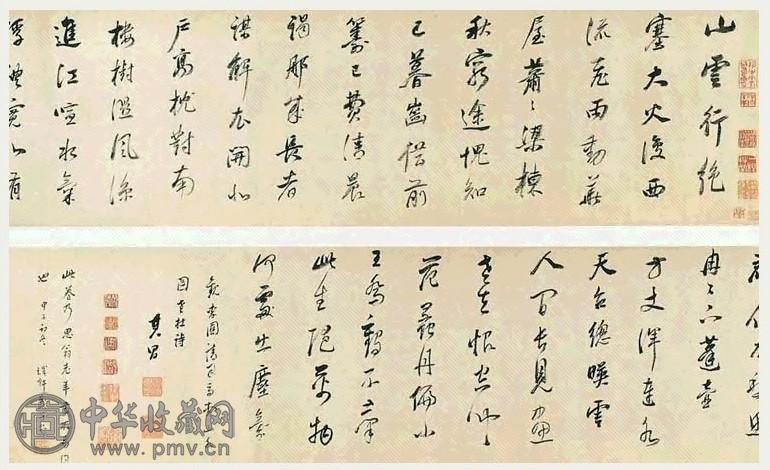 山雲行絕
塞大火復西
流飛雨動華
屋蕭〻梁棟
秋窮途愧知
己暮齒借前
籌已費清晨
謁那成長者
謀解衣開北
戶高枕對南
樓樹濕風涼
進江喧水氣
浮禮寬心有
群仙不愁思
冉〻下蓬壺
方丈渾連水
天台總映雲
人間長見畫
老去恨空聞
范蠡舟偏小
王喬鶴不群
此生隨萬物
何處出塵氛
觀李固請司馬
圖 杜詩
其昌
此卷乃思翁老年
也
中华收藏网
www.pmv.cn